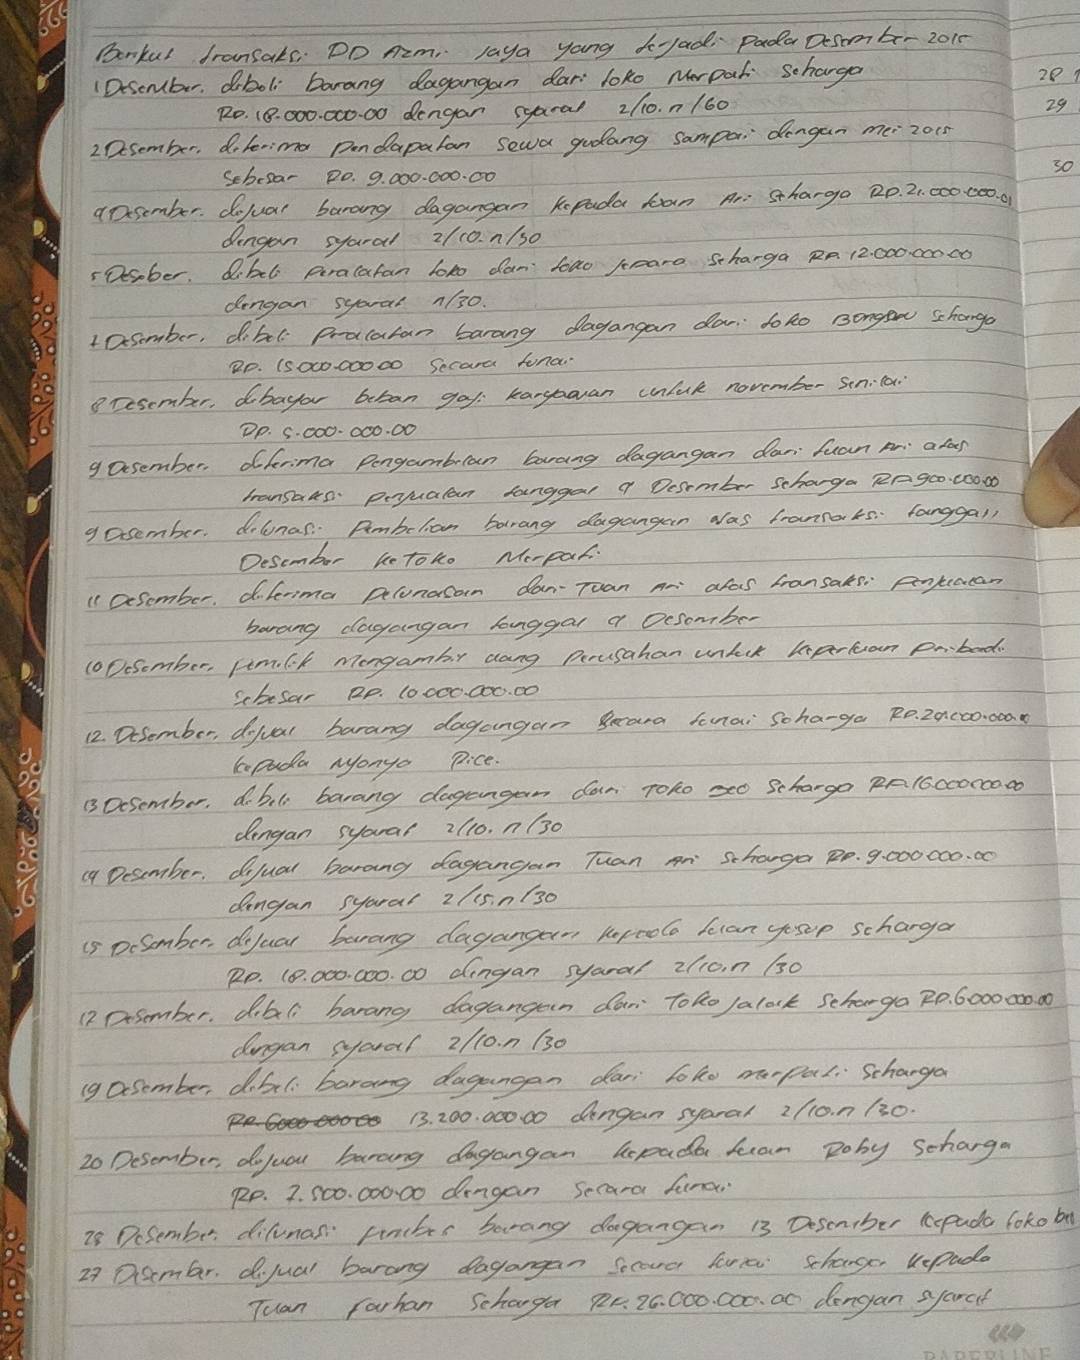 Berikut transaksi PD Azmi Jaya yang terjadi pada Desember 2015
1 Desember. dibeli barang dagangan dari toko Merpati seharga
28
Rp. 18.000.000.00 dengan syarat 2/10. n/60
29
2 Desember. diterima pendapatan sewa gudang sampai dengan mei 2015
sebesar Rp. 9.000.000.00
30
4 Desember. dijual barang dagangan kepada tuan Ari seharga Rp. 21.000.000.0
dengan syarat 2/10. n/30
5 Deseber. dibeli peralatan toko dari toko jepara seharga Rp. 12.000.000.00
dengan syarat n/30.
Desember. dibeli peralatan barang dagangan dari toko seharga
Rp. 15.000.000.00 secara tunai
8 Desember. dibayar beban gaji karyawan untuk november senilai
Rp. 5.000.000.00
9 Desember. diterima pengambilan barang dagangan dari tuan Ari atas
transaksi penjualan tanggal 4 Desember seharga Rp 900.000.00
9 Desember. dilunasi pembelian barang dagangan atas transaksi tanggal 1
Desember ke Toko Merpati
11 Desember. diterima pelunasan dari Tuan Ari atas transaksi penjualan
barang dagangan tanggal 4 Desember
10 Desember, pemilik mengambil uang perusahan untuk keperluan pribadi
sebesar Rp. 10.000.000.00
12. Desember, dijual barang dagangan secara tunai seharga Rp. 24.000.000.0
kepada Nyonya Pice.
13 Desember. dibeli barang dagangan dari Toko seharga Rp. 16.000.000.00
dengan syarat 2/10. n/30
14 Desember. dijual barang dagangan Tuan Ari seharga Rp. 9.000.000.00
dengan syarat 2/15. n/30
15 Desember. dijual barang dagangan kepada tuan yosep seharga
Rp. 18.000.000.00 dengan syarat 2/10,n /30
17 Desember. dibeli barang dagangan dari Toko Jalak seharga Rp. 6.000.000.00
dengan syarat 2/10.n /30
19 Desember, dibeli barang dagangan dari toko merpati seharga
13.200.000.00 dengan syarat 2/10.n /30.
20 Desember, dijual barang dagangan kepada tuan Roby seharga
Rp. 7.500.000.00 dengan secara tunai
Desember. dilunasi barang dagangan 13 Desember kepada toko
27 Desember. dijual barang dagangan secara tunai seharga kepada
Tuan Farhan seharga Rp. 26.000.000.00 dengan syarat
PAPERLINE